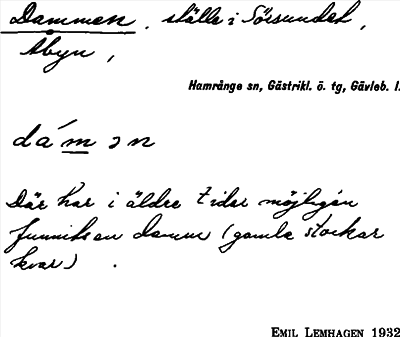 Dammen, ställe i Sörsundet,
Åbyn,
Hamrånge sn, Gästrikl. ö. tg, Gävleb. l.
dámɔn
Där har i äldre tider möjligen
funnits en damm (gamla stockar
kvar).
EMIL LEMHAGEN 1932